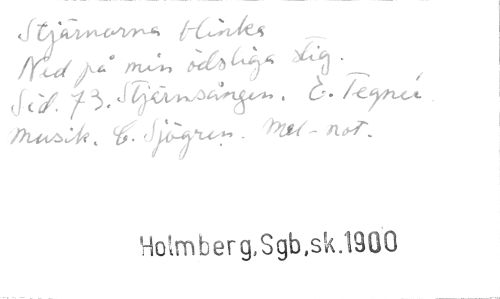 Stjärnorna blinka
Ned på min ödsliga stig.
Sid. 73. Stjernsången. E. Tegnér.
Musik. C. Sjögren. Mel-not.
Holmberg, Sgb, sk. 1900